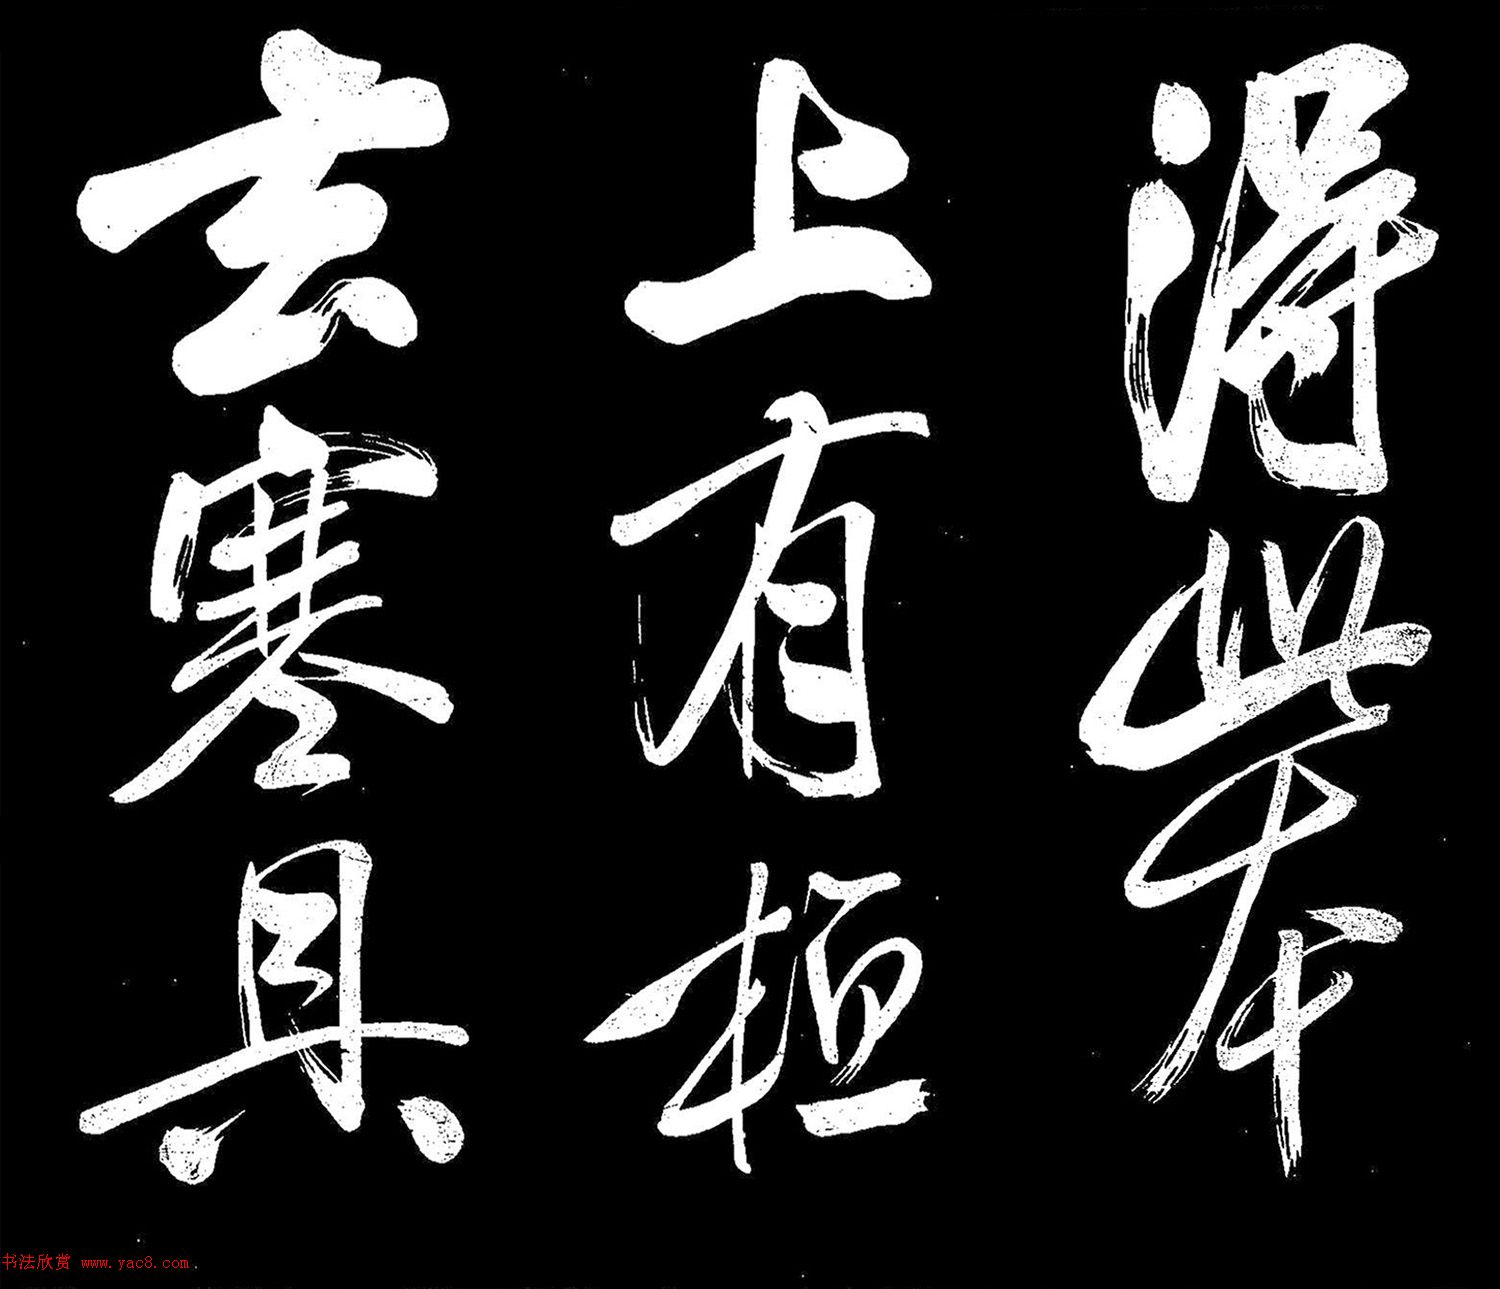 得此本
上有桓
玄寒具
书法欣赏 www.yac8.com